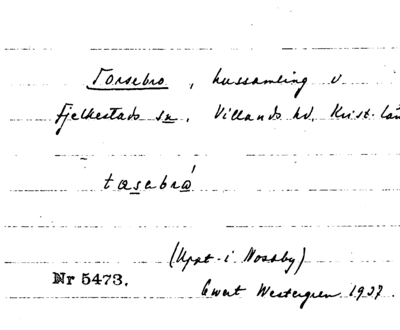 Torsebro, hussamling v
Fjelkestads sn, Villands hd, Krist. län
tɑsəbrɷ́
(Uppt. i Nosaby)
Nr 5473.
Ewert Westergren 1937.